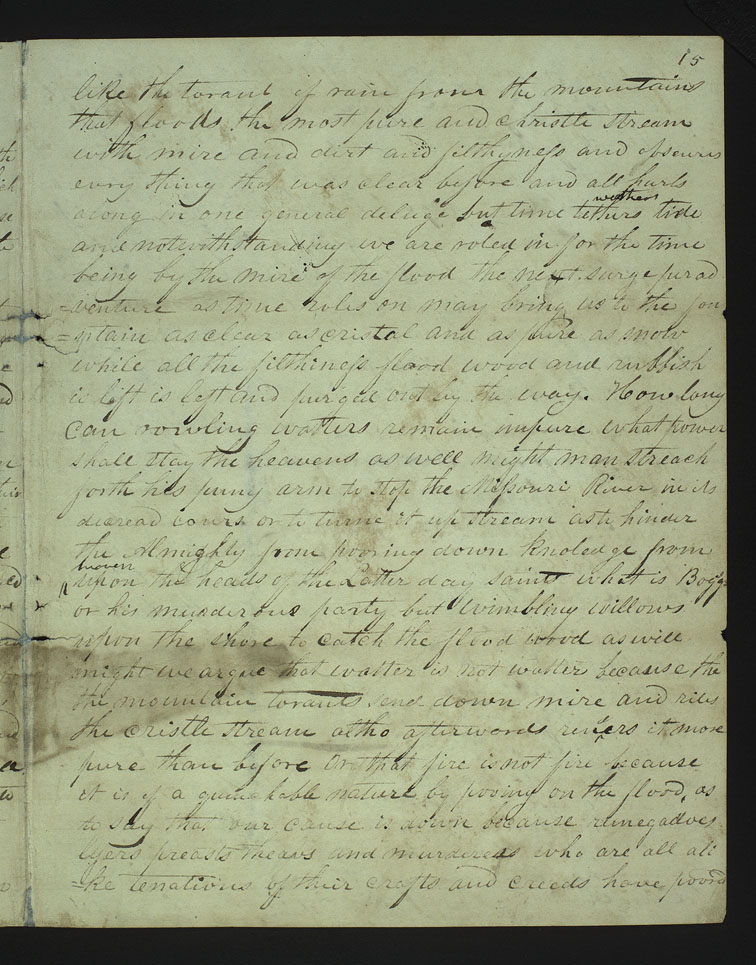 15
like the torant of rain from the mountains
that floods the most pure and christle stream
with mire and dirt and filthyness and obscures
evry thing that was clear before and all hurls
along in one general deluge but time tethers tide
wethers
and notwithstanding we are roled in for the time
being by the mire of the flood the next surge perad
=venture as time roles on may bring us to the foun
=ntain as clear as cristal and as pure as snow
while all the filthiness flood wood and rubbish
is left is left and purged out by the way. How long
can rowling watters remain impure what power
shall stay the heavens as well might man streach
forth his puny arm to stop the Missouri River in its
decread cours or to turne it up stream as to hinder
the Almighty from pooring down knoledge from
heaven
upon the heads of the Latter day saints what is Boggs
or his murderous party but wimbling willows
upon the shore to catch the flood wood as well
might we argue that watter is not watter because the
the mountain torants send down mire and riles
the cristle stream altho afterwords renders it more
pure than before Or that fire is not fire because
it is of a quenchable nature by pooring on the flood, as
to say that our cause is down because runegadoes
lyers preasts theavs and murderers who are all ali
=ke tenatious of their crafts and creeds have poord